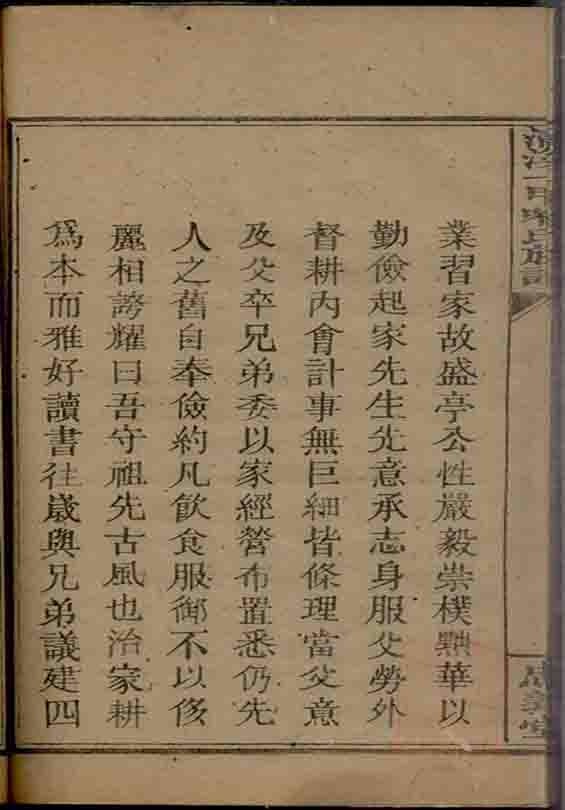 業習家故盛亭公性嚴毅崇樸黜華以
勤儉起家先生先意承志身服父勞外
督耕內會計事無巨細皆條理當父意
及父卒兄弟委以家經營布置悉仍先
人之舊自奉儉約凡飲食服御不以侈
麗相誇耀曰吾守祖先古風也治家耕
為本而雅好讀書往歲與兄弟議建四